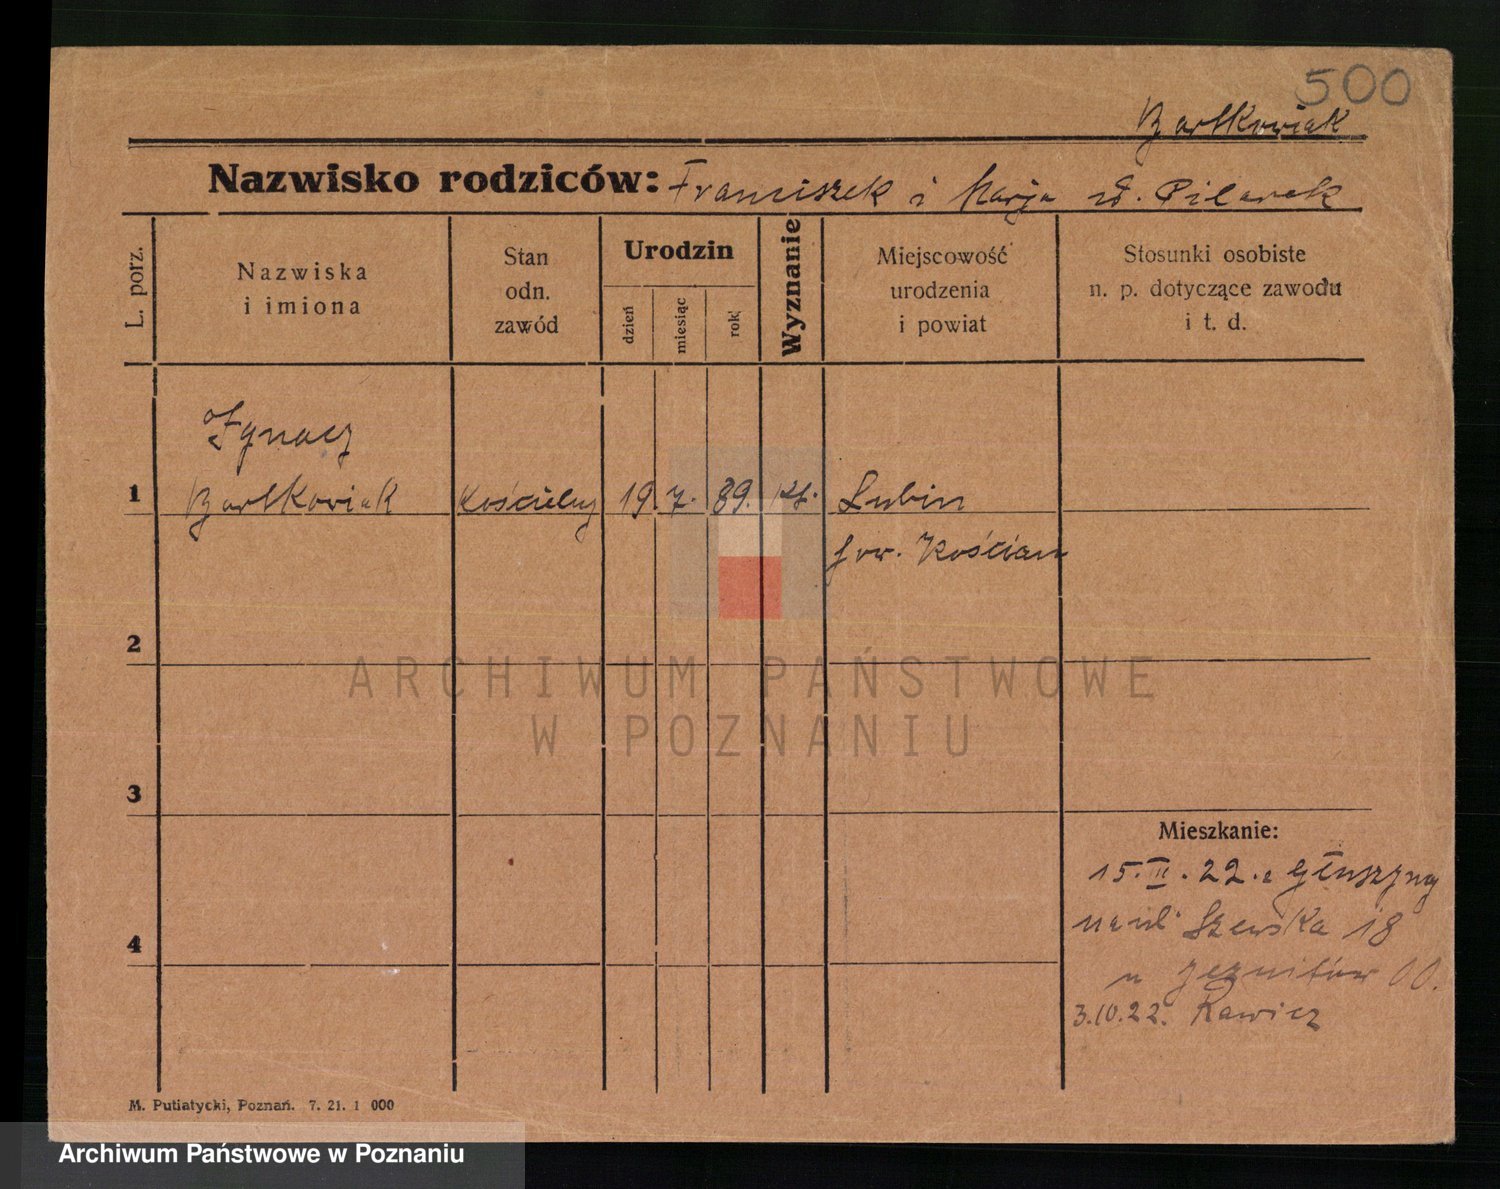 500
Bartkowiak
Nazwisko rodziców: Franciszek i Marja ur. Pilarek
L. porz.
Nazwiska
i imiona
Stan
odn.
zawód
Urodzin
dzień
miesiąc
rok
Wyznanie
Miejscowość
urodzenia
i powiat
Stosunki osobiste
n. p. dotyczące zawodu
i t. d.
Ignacy
1 Bartkowiak Kościelny 19. 7. 89. kt. Lubin
pow. Kościan
2
ARCHIWUM PAŃSTWOWE
W POZNANIU
3
Mieszkanie:
15.II.22. z Głuszyny
4
na ul. Szewska 18
u Jezuitów OO.
3.10.22. Rawicz
M. Putiatycki, Poznań. 7. 21. 1 000
Archiwum Państwowe w Poznaniu